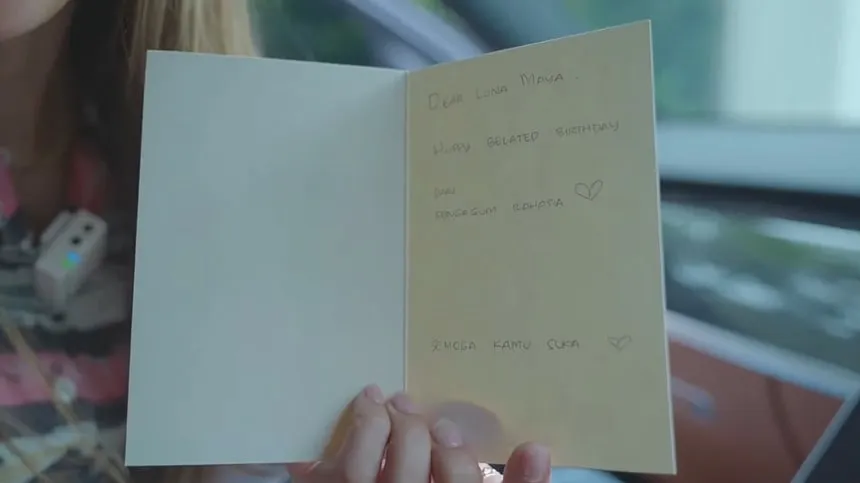 DEAR LUNA MAYA.
HAPPY BELATED BIRTHDAY
DARI
PENGAGUM RAHASIA
SEMOGA KAMU SUKA